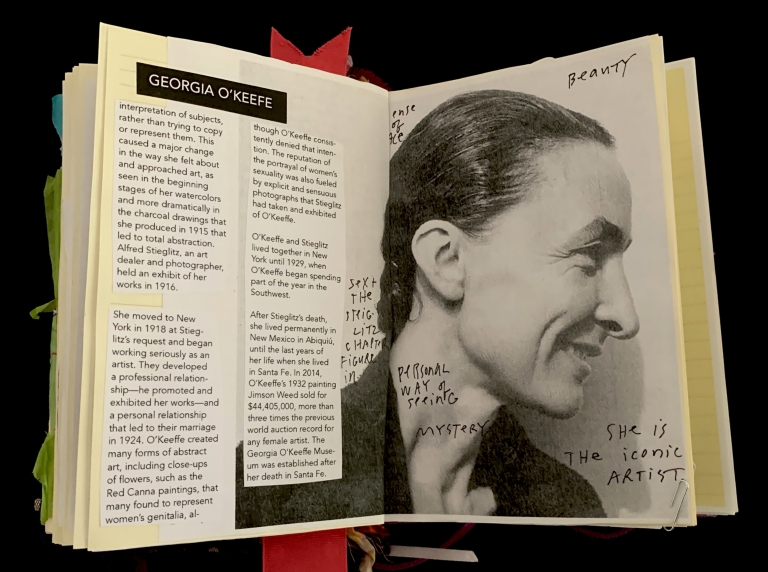 GEORGIA O'KEEFE
interpretation of subjects,
rather than trying to copy
or represent them. This
caused a major change
in the way she felt about
and approached art, as
seen in the beginning
stages of her watercolors
and more dramatically in
the charcoal drawings that
she produced in 1915 that
led to total abstraction.
Alfred Stieglitz, an art
dealer and photographer,
held an exhibit of her
works in 1916.
She moved to New
York in 1918 at Stieg-
litz's request and began
working seriously as an
artist. They developed
a professional relation-
ship—he promoted and
exhibited her works—and
a personal relationship
that led to their marriage
in 1924. O'Keeffe created
many forms of abstract
art, including close-ups
of flowers, such as the
Red Canna paintings, that
many found to represent
women's genitalia, al-
though O'Keeffe consis-
tently denied that inten-
tion. The reputation of
the portrayal of women's
sexuality was also fueled
by explicit and sensuous
photographs that Stieglitz
had taken and exhibited
of O'Keeffe.
O'Keeffe and Stieglitz
lived together in New
York until 1929, when
O'Keeffe began spending
part of the year in the
Southwest.
After Stieglitz's death,
she lived permanently in
New Mexico in Abiquiú,
until the last years of
her life when she lived
in Santa Fe. In 2014,
O'Keeffe's 1932 painting
Jimson Weed sold for
$44,405,000, more than
three times the previous
world auction record for
any female artist. The
Georgia O'Keeffe Muse-
um was established after
her death in Santa Fe.
Sex +
THE
STEIG-
LITZ
CHAPT
FIGURE
in
BEAUTY
ense
of
personal
WAY of
seeing
MYSTERY
SHE is
THE iconic
ARTIST.